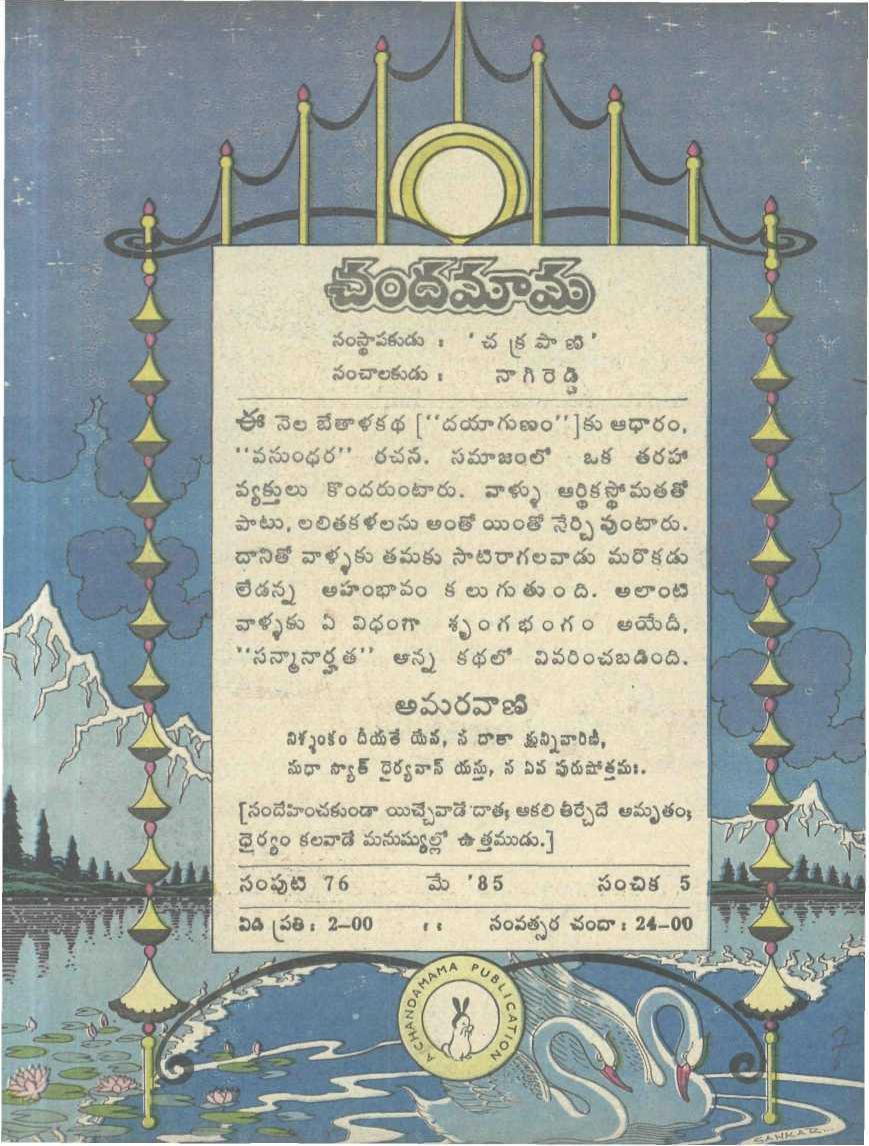 చందమామ
సంస్థాపకుడు : 'చక్రపాణి'
సంచాలకుడు : నాగిరెడ్డి
ఈ నెల బేతాళకథ [''దయాగుణం'']కు ఆధారం,
''వసుంధర'' రచన. సమాజంలో ఒక తరహా
వ్యక్తులు కొందరుంటారు. వాళ్ళు ఆర్థికస్తోమతతో
పాటు, లలితకళలను అంతో యింతో నేర్చి వుంటారు.
దానితో వాళ్ళకు తమకు సాటిరాగలవాడు మరొకడు
లేడన్న అహంభావం కలుగుతుంది. అలాంటి
వాళ్ళకు ఏ విధంగా శృంగభంగం అయేదీ,
''సన్మానార్హత'' అన్న కథలో వివరించబడింది.
అమరవాణి
నిశ్శంకం దీయతే యేన, స దాతా క్షున్నివారిణీ,
సుధా స్యాత్ ధైర్యవాన్ యస్తు, స ఏవ పురుషోత్తమః.
[సందేహించకుండా యిచ్చేవాడే దాత; ఆకలి తీర్చేదే అమృతం;
ధైర్యం కలవాడే మనుష్యుల్లో ఉత్తముడు.]
సంపుటి 76 మే '85 సంచిక 5
విడి ప్రతి : 2-00 :: సంవత్సర చందా : 24-00
A CHANDAMAMA PUBLICATION
SANKAR...